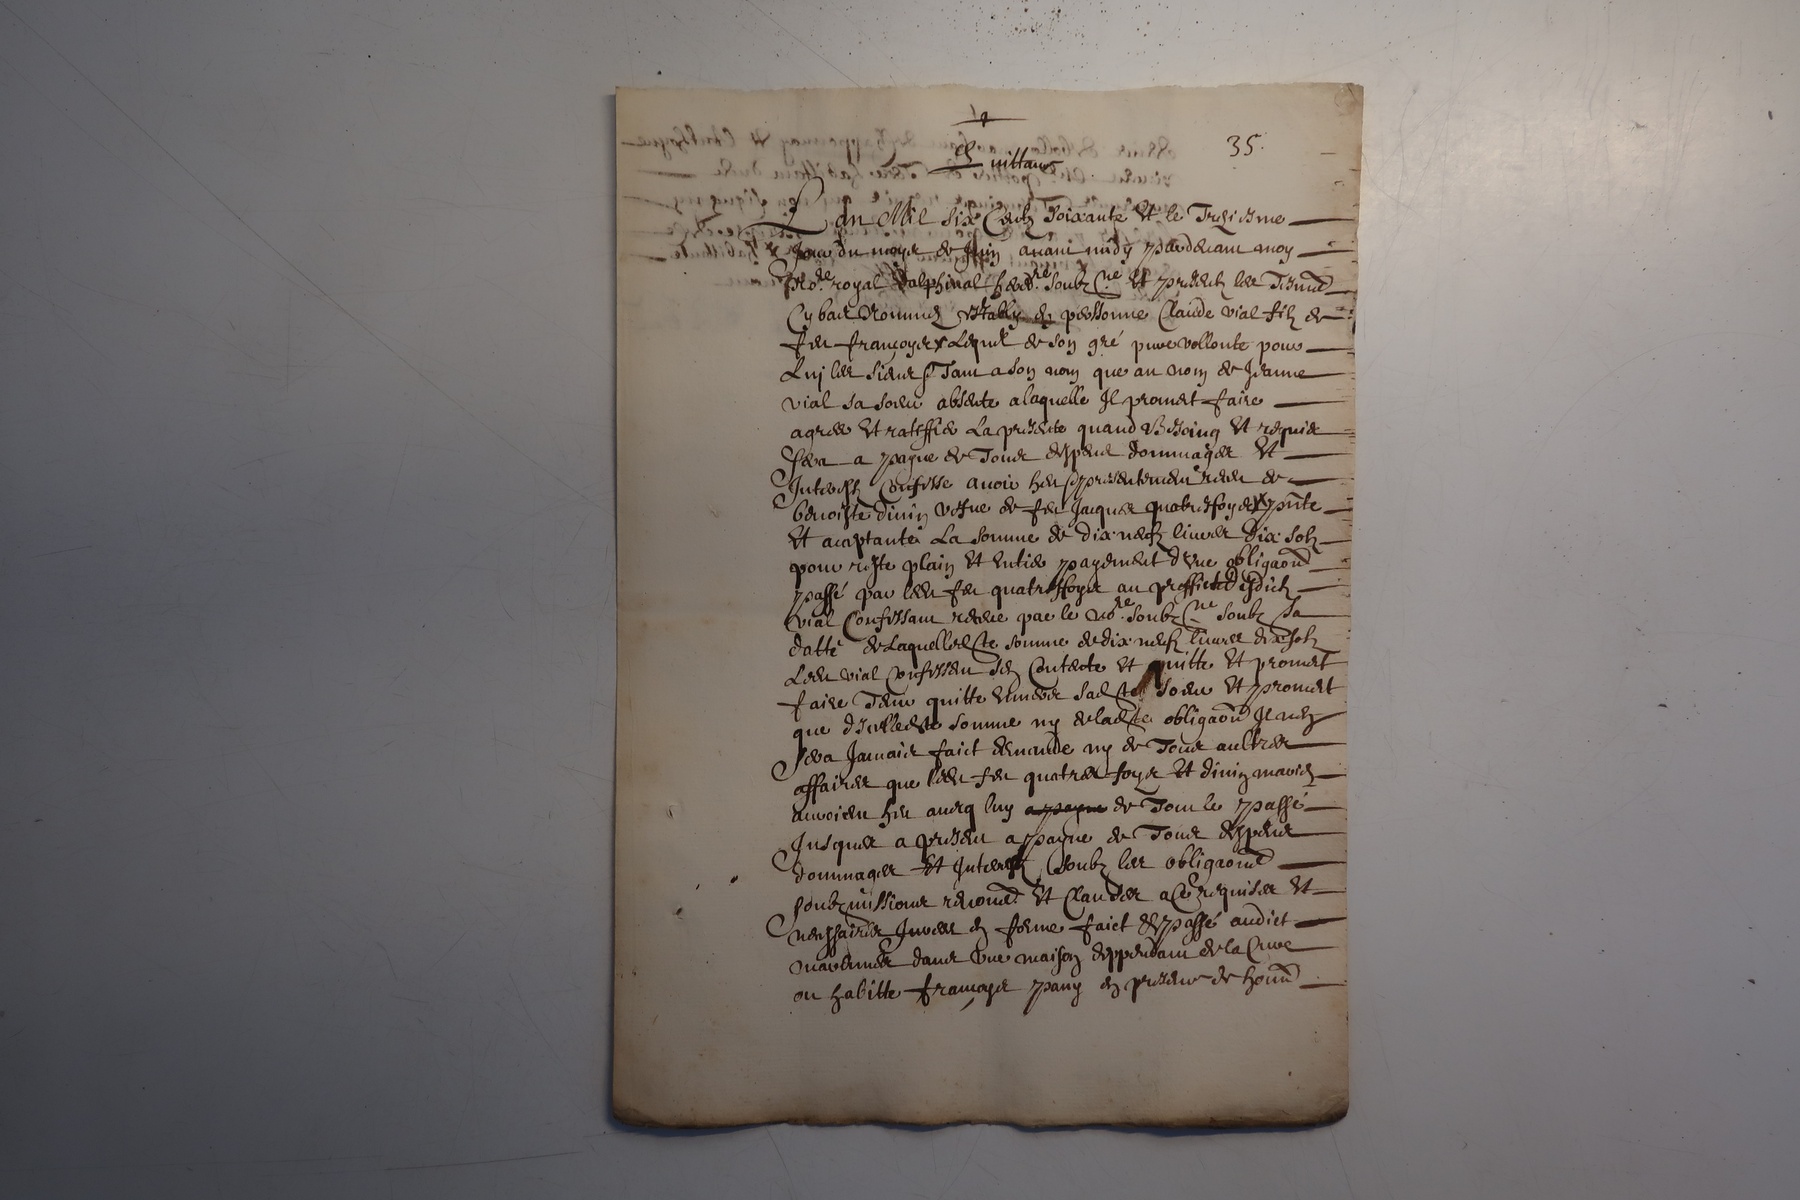 35
Quittance
L'an Mil Six Centz Soixante et le Treiziesme
Jour du moys de Juin avant midy pardevant moy
No.re royal dalphinal hered.re soubz.ne et presentz les Tesmoi
Cy bas Nommes Estably en personne Claude vial filz de
feu françoys Lequel de son gré pure vollonte pour
Luy les siens Tant a son nom que au nom de Jeanne
vial sa soeur absente a laquelle Il promet faire
agreer Et ratiffier La presente quand Besoing Et requis
Sera a payne de Tous despens dommages Et
Interestz Confesse avoir heu presentement receu de
benoiste divin vefve de feu Jacques quatrefoyes pnte
Et acceptante La somme de dix neufz livres dix solz
pour reste plain Et Entier payement d'une obligaon
passé par led feu quatreffoyes au proffict desdictz
vial Confessant receue par le no.re soubz.ne soubz sa
datte de Laquelle dte somme de dix neufz livres dix solz
Led vial confessant sen Contente Et quitte Et promet
faire Tenir quitte Envers sad te soeur Et promet
que d'Icelle dte somme ny de lad te obligaon Il nen
sera Jamais faict demande ny de Tous aultres
affaires que led feu quatres foyes Et divin mariés
avoient heu avecq luy a payne de Tout le passé
Jusques a present a payne de Tous despens
dommages Et Interestz Soubz les obligaons
soubzmissions renon Et Clauses a Ce requises Et
necessaires Jurees En forme faict Et passé audict
dans Une maison deppendant de la Cure
ou habitte françoys pany En presence de honn